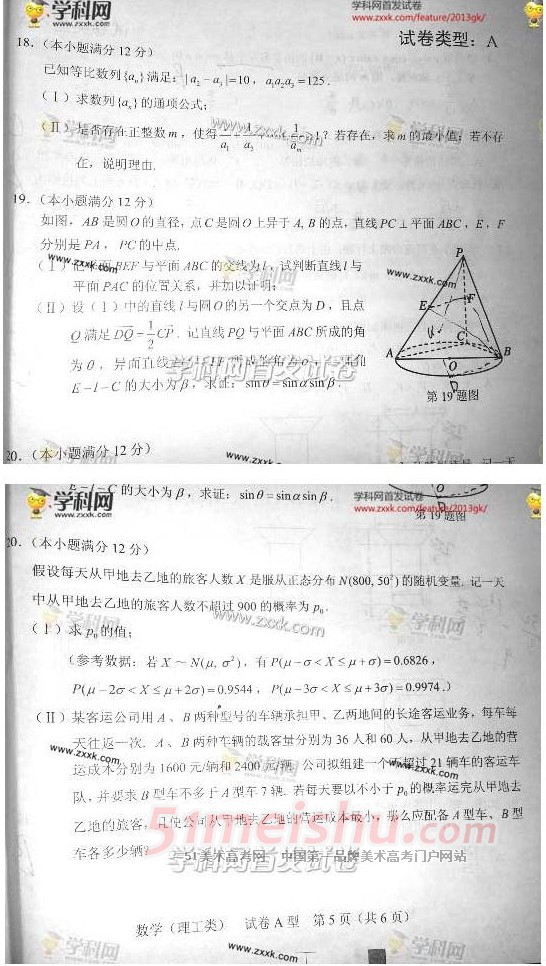 学科网
www.zxxk.com
学科网首发试卷
www.zxxk.com/feature/2013gk/
试卷类型：A
18.（本小题满分 12 分）
已知等比数列{aₙ}满足：|a₂ − a₃|=10，a₁a₂a₃ =125.
（Ⅰ）求数列{aₙ}的通项公式；
（Ⅱ）是否存在正整数 m，使得 1/a₁ 1/a₂ 1/aₘ ≥1？若存在，求 m 的最小值；若不存
在，说明理由.
www.zxxk.com
19.（本小题满分 12 分）
如图，AB 是圆 O 的直径，点 C 是圆 O 上异于 A, B 的点，直线 PC ⊥ 平面 ABC，E，F
分别是 PA，PC 的中点.
（Ⅰ）记平面 BEF 与平面 ABC 的交线为 l，试判断直线 l 与
平面 PAC 的位置关系，并加以证明；
（Ⅱ）设（Ⅰ）中的直线 l 与圆 O 的另一个交点为 D，且点
Q 满足 DQ = 1/2 CP. 记直线 PQ 与平面 ABC 所成的角
为 θ，异面直线
E−l−C 的大小为 β，求证：sin θ = sin α sin β.
www.zxxk.com
学科网首发试卷
P
E
F
l
C
A
B
O
D
第 19 题图
20.（本小题满分 12 分）
www.zxxk.com
学科网
www.zxxk.com
E−l−C 的大小为 β，求证：sin θ = sin α sin β.
学科网首发试卷
www.zxxk.com/feature/2013gk/
第 19 题图
20.（本小题满分 12 分）
假设每天从甲地去乙地的旅客人数 X 是服从正态分布 N(800, 50²) 的随机变量. 记一天
中从甲地去乙地的旅客人数不超过 900 的概率为 p₀.
www.zxxk.com
（Ⅰ）求 p₀ 的值；
学科网首发试卷
（参考数据：若 X ～ N(μ, σ²)，有 P(μ − σ < X ≤ μ + σ) = 0.6826，
P(μ − 2σ < X ≤ μ + 2σ) = 0.9544，P(μ − 3σ < X ≤ μ + 3σ) = 0.9974.）
（Ⅱ）某客运公司用 A、B 两种型号的车辆承担甲、乙两地间的长途客运业务，每车每
天往返一次. A、B 两种车辆的载客量分别为 36 人和 60 人，从甲地去乙地的营
运成本分别为 1600 元/辆和 2400 元/辆. 公司拟组建一个不超过 21 辆车的客运车
队，并要求 B 型车不多于 A 型车 7 辆. 若每天要以不小于 p₀ 的概率运完从甲地去
乙地的旅客，且使公司从甲地去乙地的营运成本最小，那么应配备 A 型车、B 型
车各多少辆？
www.zxxk.com
51meishu.com
51美术高考网 中国第一品牌美术高考门户网站
学科网首发试卷
数学（理工类） 试卷 A 型 第 5 页（共 6 页）
学科网
www.zxxk.com